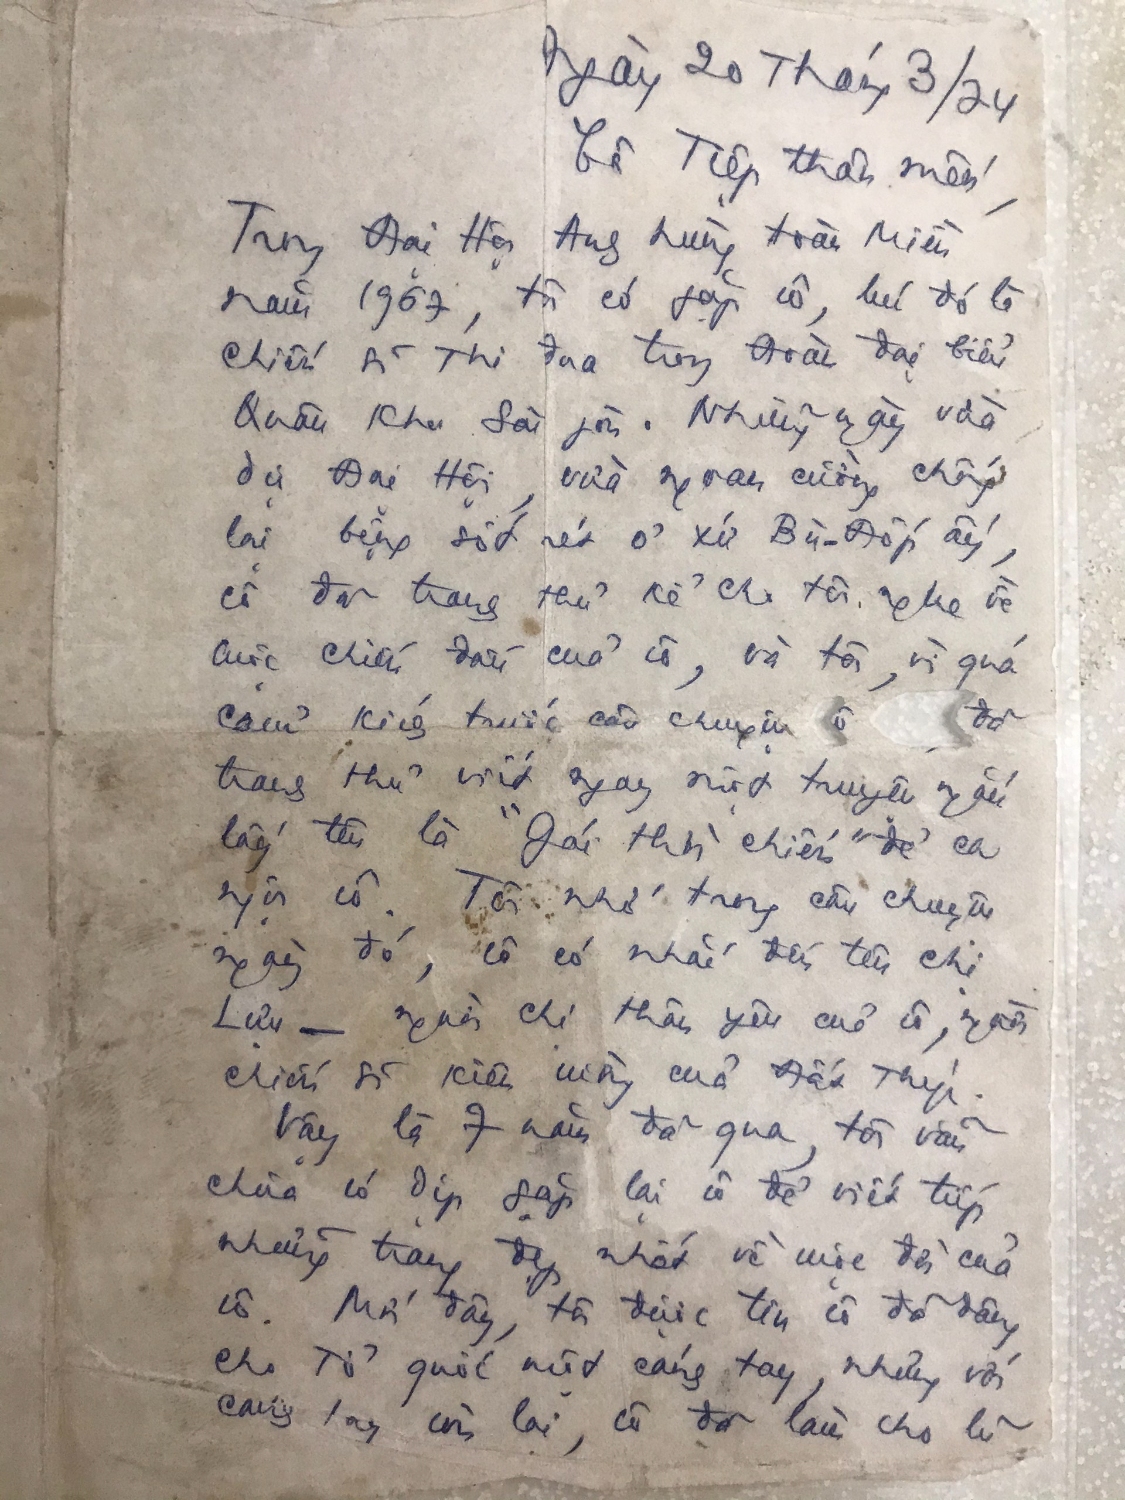 Ngày 20 Tháng 3/74
Cô Tiếp thân mến,
Trong Đại Hội Anh hùng toàn Miền
năm 1967, tôi có gặp cô, lúc đó là
chiến sĩ Thi đua trong Đoàn đại biểu
Quân Khu Sài gòn. Những ngày vừa
dự Đại Hội, vừa ngoan cường chống
lại bệnh sốt rét ở xứ Bù-Đốp ấy,
cô đã tranh thủ kể cho tôi nghe về
cuộc chiến đấu của cô, và tôi, vì quá
cảm kích trước câu chuyện đã
tranh thủ viết ngay một truyện ngắn
lấy tên là "Gái thời chiến" để ca
ngợi cô. Tôi nhớ trong câu chuyện
ngày đó, cô có nhắc đến tên chị
Lựu — người chị thân yêu của cô, người
chiến sĩ kiên cường của Đất Thép.
Vậy là 7 năm đã qua, tôi vẫn
chưa có dịp gặp lại cô để viết tiếp
những trang đẹp nhất về cuộc đời của
cô. Mới đây, tôi được tin cô đã dâng
cho Tổ quốc một cánh tay, nhưng với
cánh tay còn lại, cô đã làm cho lũ